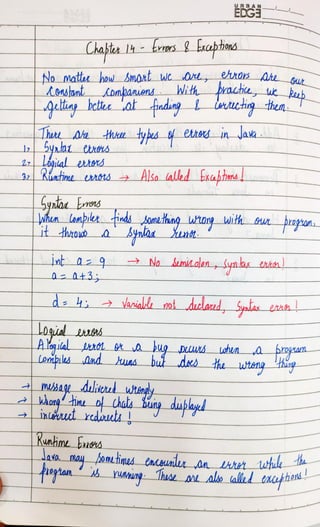 URBAN
EDGE
Chapter 14 - Errors & Exceptions
No matter how smart we are, errors are our
constant companions. With practice, we keep
getting better at finding & correcting them.
There are three types of errors in Java.
1. Syntax errors
2. Logical errors
3. Runtime errors → Also called Exceptions!
Syntax Errors
When compiler finds something wrong with our program,
it throws a syntax error.
int a = 9 → No semicolon, syntax error!
a = a+3;
d = 4; → Variable not declared, Syntax error!
Logical errors
A logical error or a bug occurs when a program
compiles and runs but does the wrong thing
→ message delivered wrongly
→ Wrong time of chats being displayed
→ incorrect redirects!
Runtime Errors
Java may sometimes encounter an error while the
program is running. These are also called exceptions!